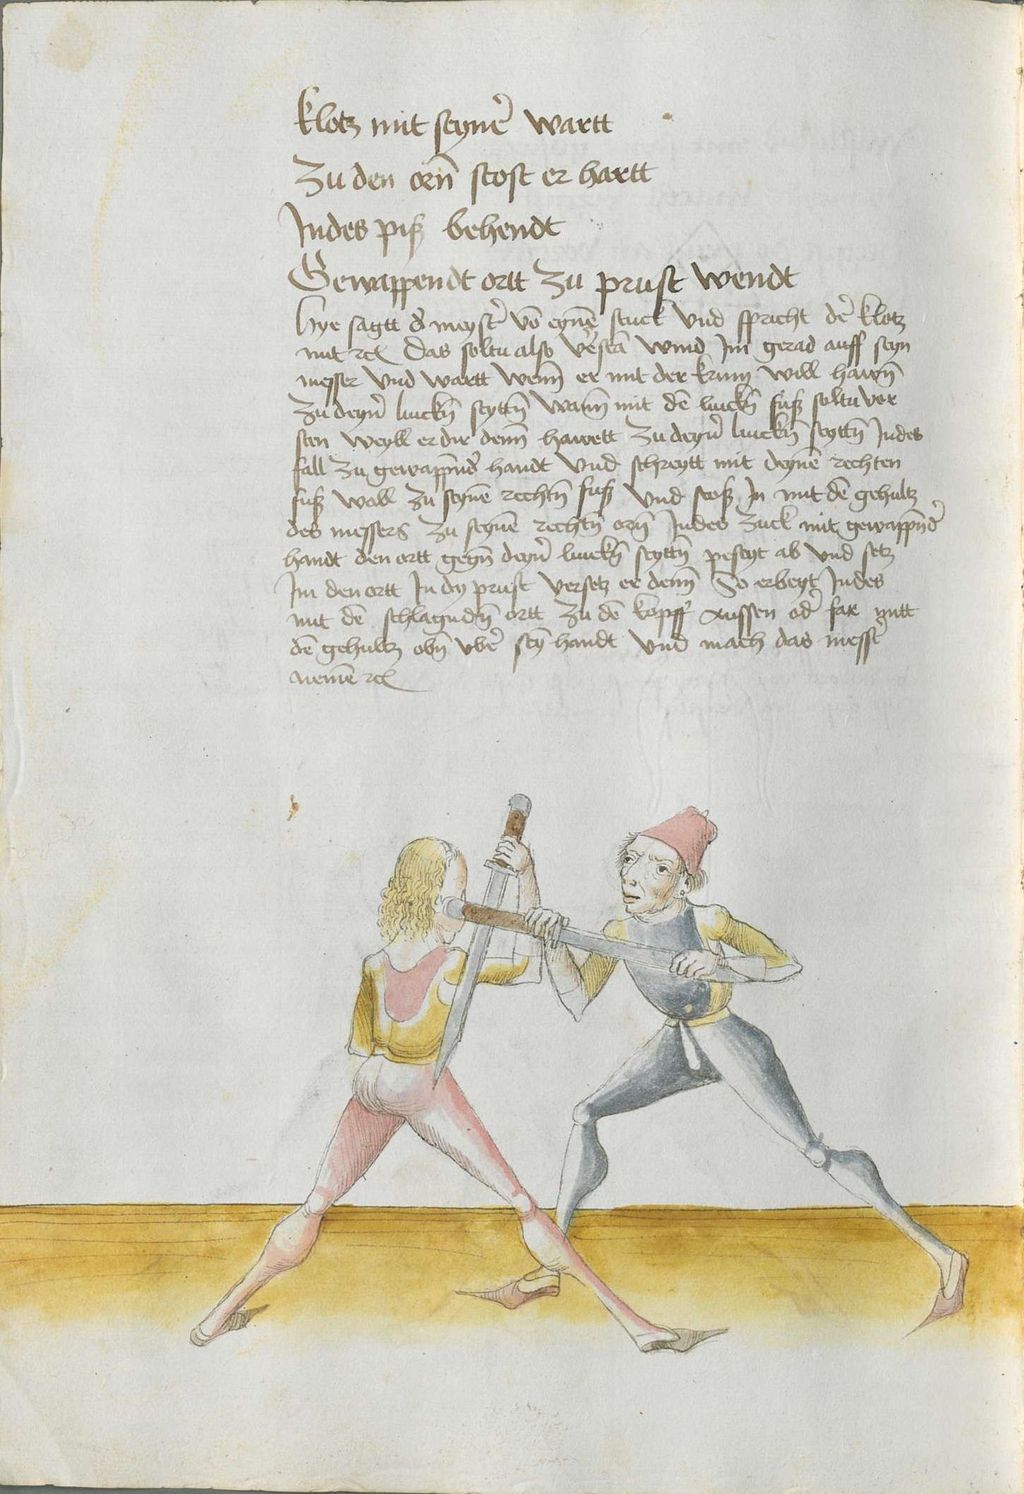 klotz mit seyner̄ wartt
Zu den orn̄ stost er hartt
Indes piß behendt
Gewappendt ortt zu prust wendt
Hye sagtt d' meyster̄ vō eynē stuck vnd spricht der̄ klotz
mit rc Das soltu also v'stā wind Im gerad auff seyn
messer vnd wartt wenn er mit der krum will hawn̄
zu deyn' linckn̄ seyttn̄ wann mit dē linckn̄ fuß soltu vor
sten weyll er dir denn hawett zu deyn' linckn̄ seyttn̄ Indes
fall zu gewappnd' handt vnd schreytt mit deynē rechten
fuß woll zu seynē rechtn̄ fuß vnd stoß In mit dē gehultz
des messers zu seynē rechtn̄ orn̄ Indes zuck mit gewappnd'
handt den ortt gegn̄ deyn' linckn̄ seyttn̄ peseyt ab vnd setz
Im den ortt In dy prust versetz er denn So erbeyt Indes
mit dē schlagndn̄ ortt zu dē kopff aussen od' far mitt
dē gehultz obn̄ vber̄ seȳ handt vnd mach das messer̄
nemē rc